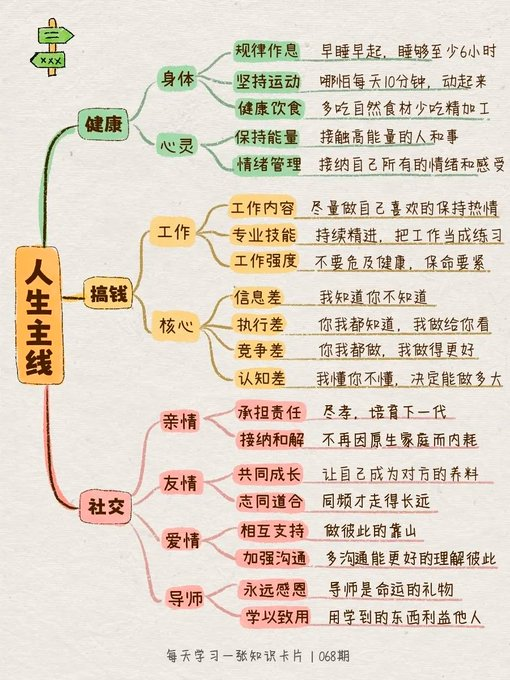 xxx
人生主线
健康
身体
规律作息 早睡早起，睡够至少6小时
坚持运动 哪怕每天10分钟，动起来
健康饮食 多吃自然食材少吃精加工
心灵
保持能量 接触高能量的人和事
情绪管理 接纳自己所有的情绪和感受
搞钱
工作
工作内容 尽量做自己喜欢的保持热情
专业技能 持续精进，把工作当成练习
工作强度 不要危及健康，保命要紧
核心
信息差 我知道你不知道
执行差 你我都知道，我做给你看
竞争差 你我都做，我做得更好
认知差 我懂你不懂，决定能做多大
社交
亲情
承担责任 尽孝，培育下一代
接纳和解 不再因原生家庭而内耗
友情
共同成长 让自己成为对方的养料
志同道合 同频才走得长远
爱情
相互支持 做彼此的靠山
加强沟通 多沟通能更好的理解彼此
导师
永远感恩 导师是命运的礼物
学以致用 用学到的东西利益他人
每天学习一张知识卡片 | 068期